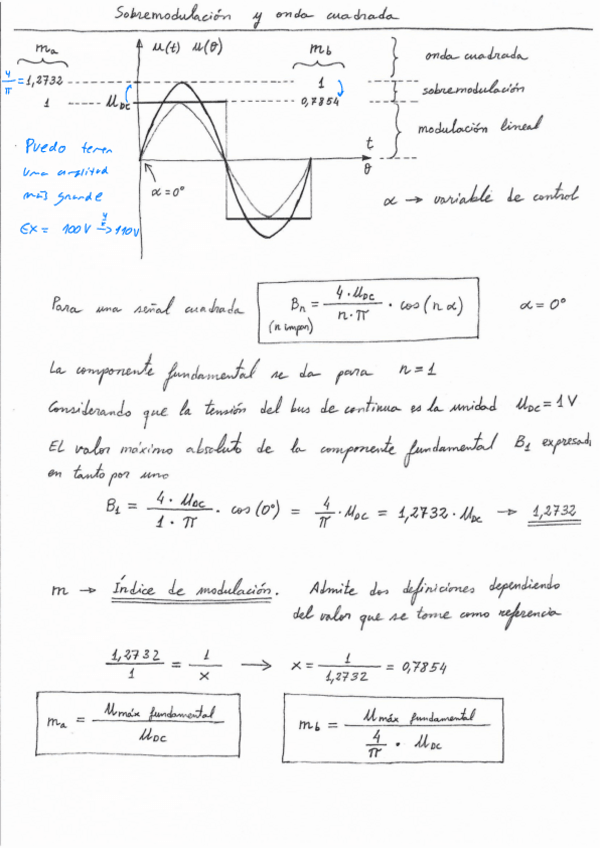 Sobremodulación y onda cuadrada
ma
u(t) u(θ)
mb
onda cuadrada
4/π = 1,2732
1
sobremodulación
1
UDC
0,7854
modulación lineal
t
θ
α = 0°
Puedo tener
una amplitud
más grande
EX = 100V 4/π → 110V
α → variable de control
Para una señal cuadrada
Bn = 4·UDC / n·π · cos(n α)
(n impar)
α = 0°
La componente fundamental se da para n = 1
Considerando que la tensión del bus de continua es la unidad UDC = 1 V
El valor máximo absoluto de la componente fundamental B1 expresad
en tanto por uno
B1 = 4·UDC / 1·π · cos(0°) = 4/π · UDC = 1,2732 · UDC → 1,2732
m → Índice de modulación. Admite dos definiciones dependiendo
del valor que se tome como referencia
1,2732 / 1 = 1 / x → x = 1 / 1,2732 = 0,7854
ma = Umáx fundamental / UDC
mb = Umáx fundamental / 4/π · UDC